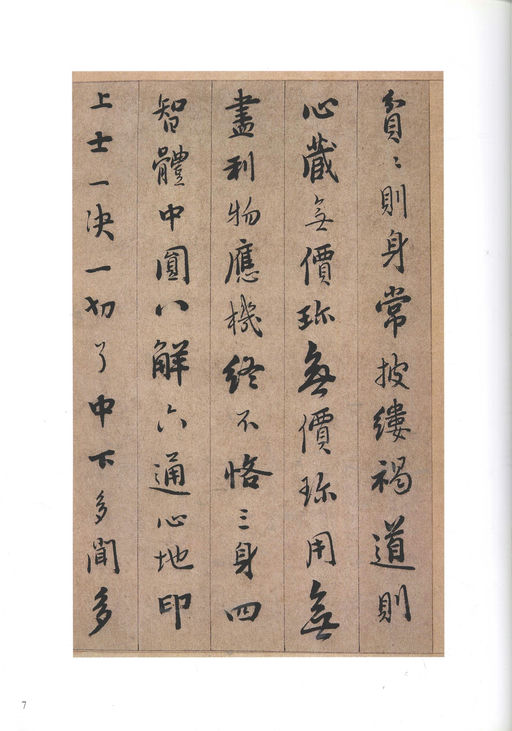 貧〻則身常披縷褐道則
心藏無價珎無價珎用無
盡利物應機終不悋三身四
智體中圓八解六通心地印
上士一決一切了中下多聞多
7